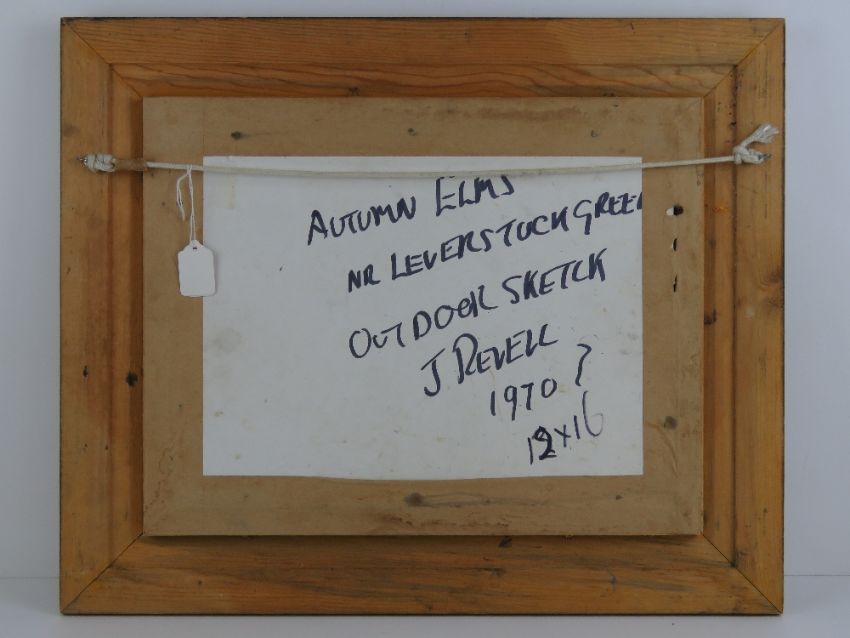 AUTUMN ELMS
NR LEVERSTOCK GREEN
OUTDOOR SKETCH
J REVELL
1970 ?
12x16